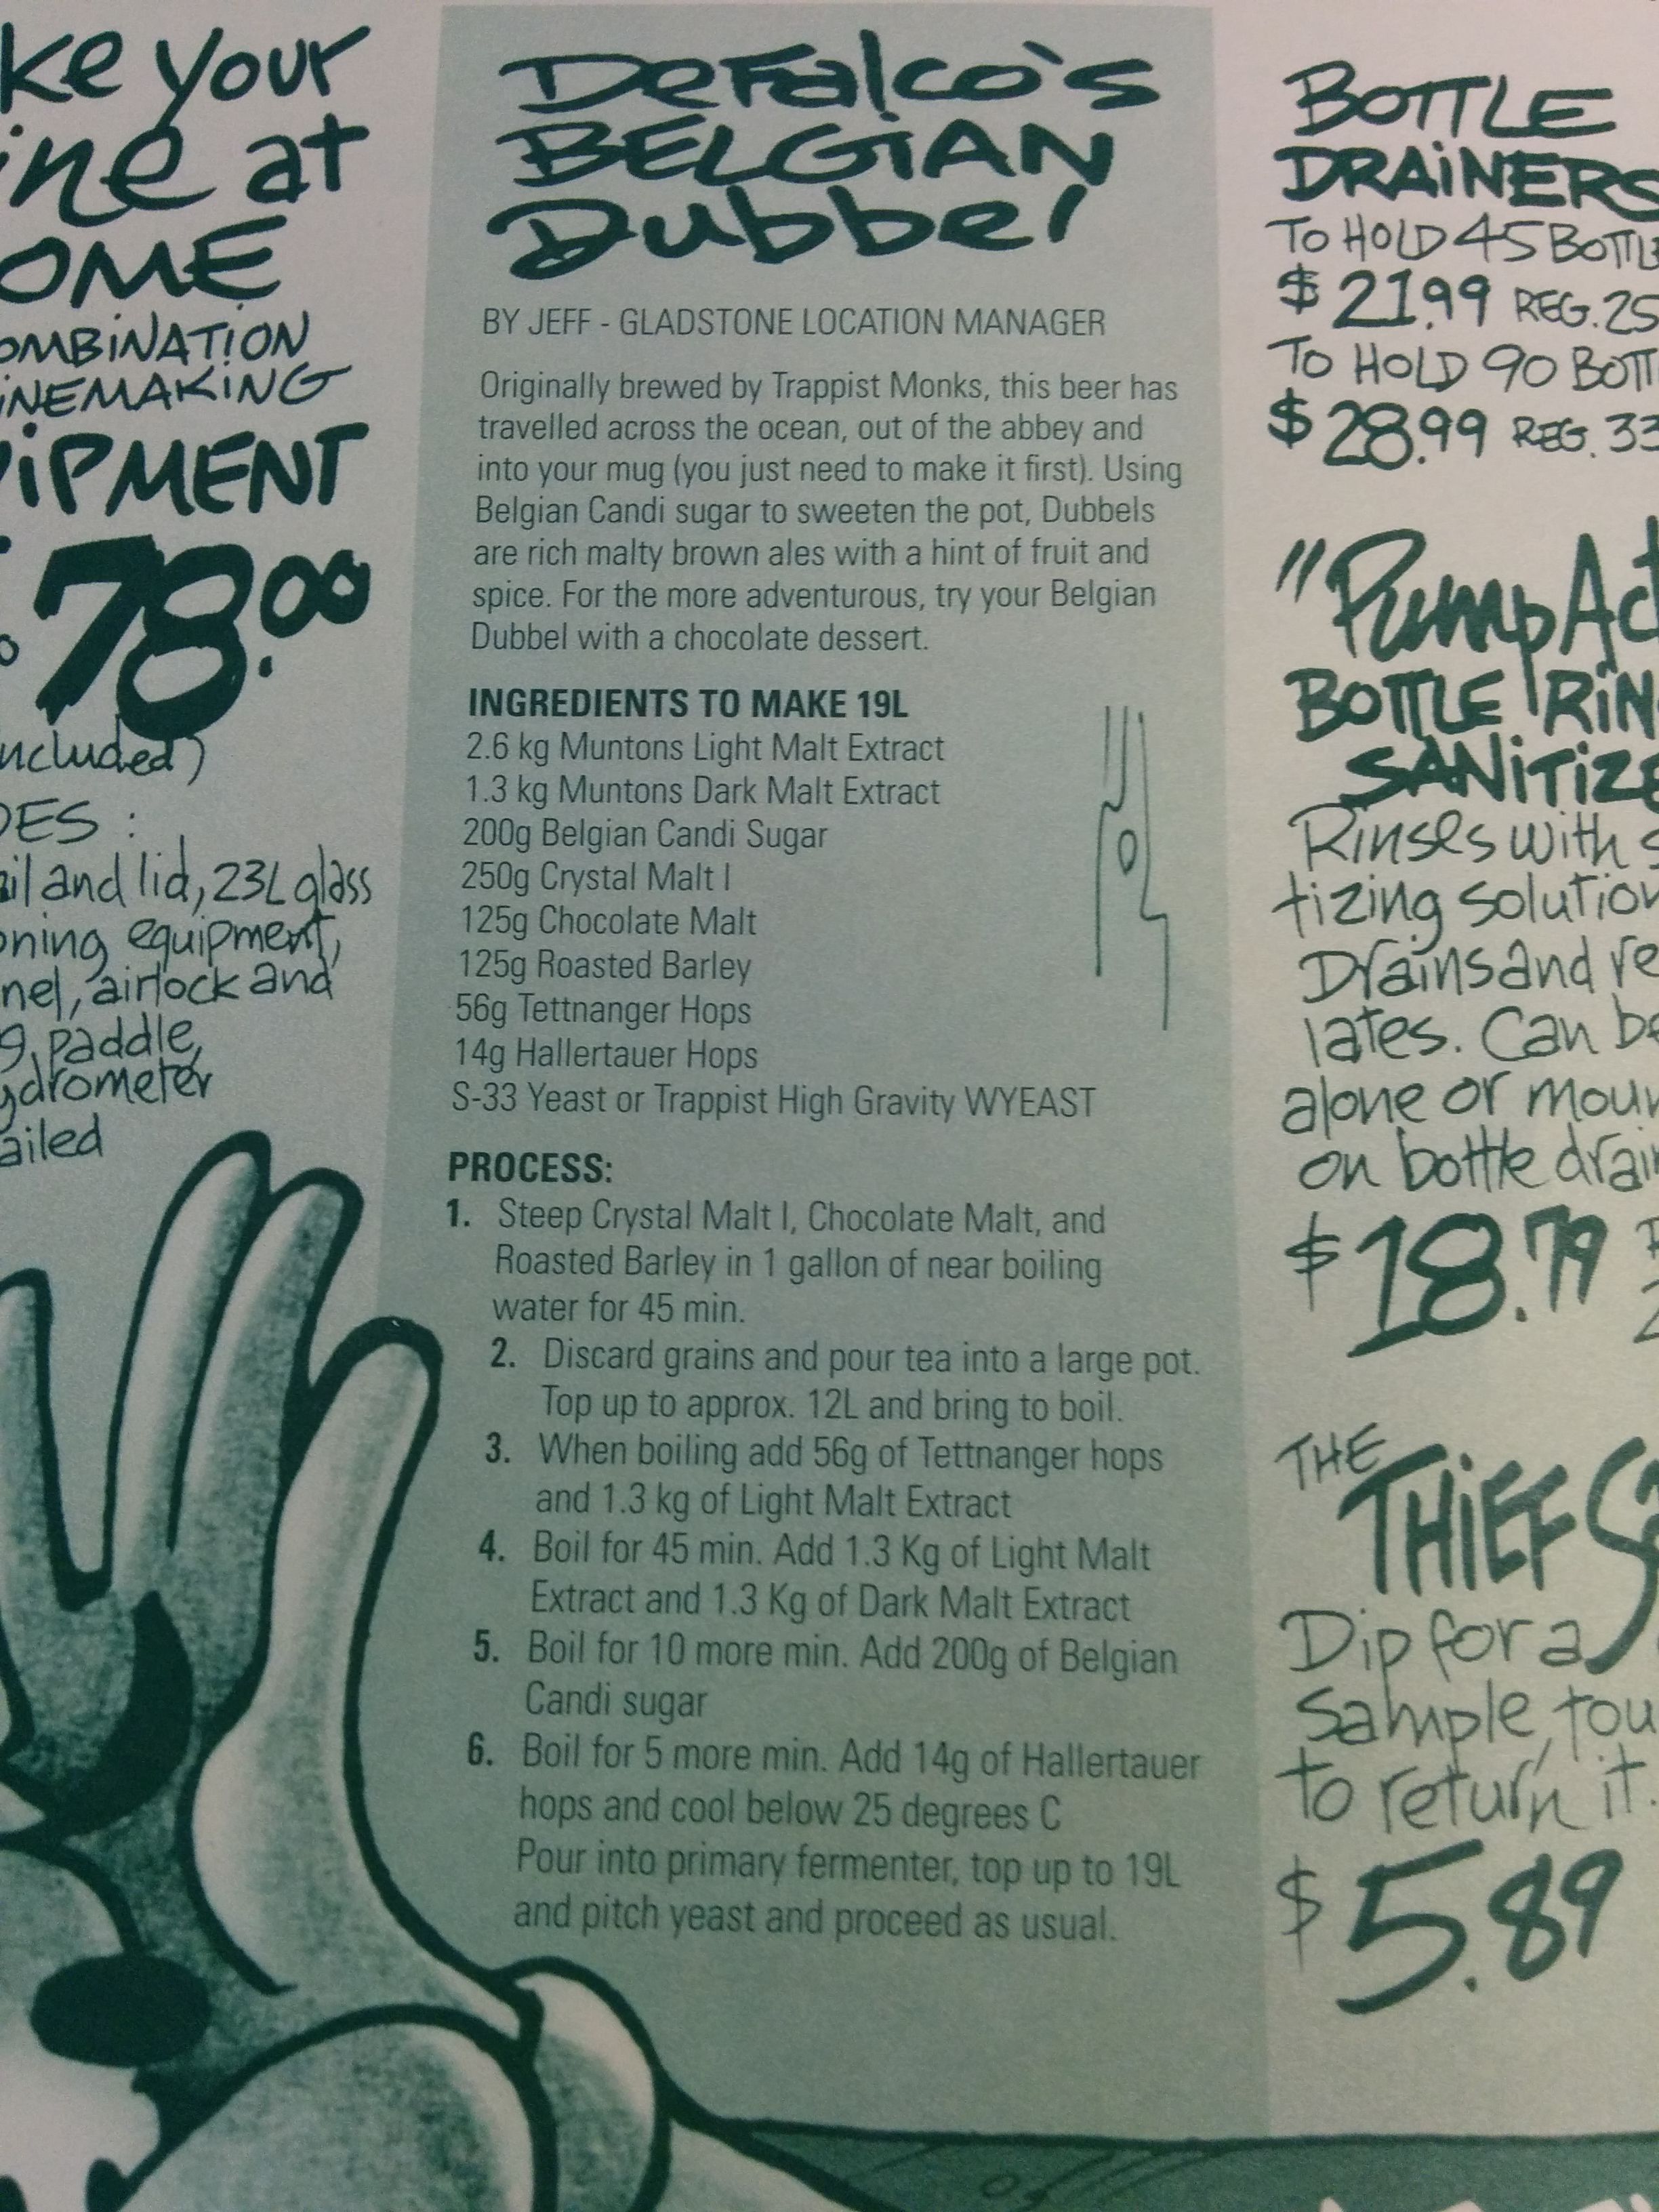 ke your
ine at
OME
OMBINATION
INEMAKING
IPMENT
78.00
ncluded)
DES :
ail and lid, 23L glass
oning equipment,
nel, airlock and
g, paddle,
ydrometer
ailed
DeFalco's
BELGIAN
Dubbel
BY JEFF - GLADSTONE LOCATION MANAGER
Originally brewed by Trappist Monks, this beer has
travelled across the ocean, out of the abbey and
into your mug (you just need to make it first). Using
Belgian Candi sugar to sweeten the pot, Dubbels
are rich malty brown ales with a hint of fruit and
spice. For the more adventurous, try your Belgian
Dubbel with a chocolate dessert.
INGREDIENTS TO MAKE 19L
2.6 kg Muntons Light Malt Extract
1.3 kg Muntons Dark Malt Extract
200g Belgian Candi Sugar
250g Crystal Malt I
125g Chocolate Malt
125g Roasted Barley
56g Tettnanger Hops
14g Hallertauer Hops
S-33 Yeast or Trappist High Gravity WYEAST
PROCESS:
1. Steep Crystal Malt I, Chocolate Malt, and
Roasted Barley in 1 gallon of near boiling
water for 45 min.
2. Discard grains and pour tea into a large pot.
Top up to approx. 12L and bring to boil.
3. When boiling add 56g of Tettnanger hops
and 1.3 kg of Light Malt Extract
4. Boil for 45 min. Add 1.3 Kg of Light Malt
Extract and 1.3 Kg of Dark Malt Extract
5. Boil for 10 more min. Add 200g of Belgian
Candi sugar
6. Boil for 5 more min. Add 14g of Hallertauer
hops and cool below 25 degrees C
Pour into primary fermenter, top up to 19L
and pitch yeast and proceed as usual.
BOTTLE
DRAINERS
TO HOLD 45 BOTTLE
$21.99 REG. 25
TO HOLD 90 BOTT
$28.99 REG. 33
"Pump Act
BOTTLE RIN
SANITIZE
Rinses with s
tizing solution
Drains and re
lates. Can be
alone or moun
on bottle drain
$18.79
THE
THIEF
Dip for a
Sample, tou
to return it.
$5.89